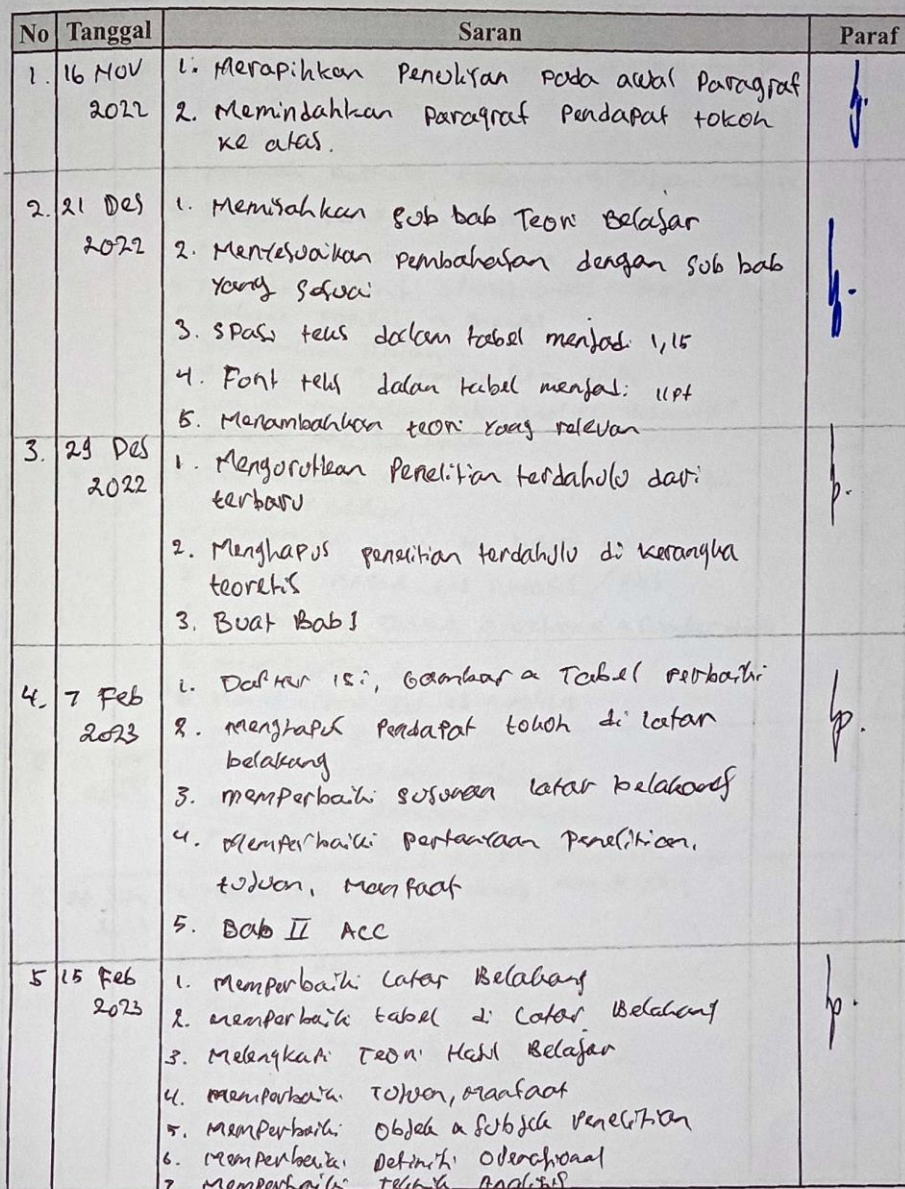 No Tanggal Saran Paraf
1. 16 Nov 1. Merapihkan Penulisan pada awal Paragraf
2022 2. Memindahkan paragraf Pendapat tokoh
ke atas.
2. 21 Des 1. Memisahkan sub bab Teori Belajar
2022 2. Menyesuaikan pembahasan dengan sub bab
yang sesuai
3. Spasi teks dalam tabel menjadi 1,15
4. Font teks dalam tabel menjadi 11pt
5. Menambahkan teori yang relevan
3. 29 Des 1. Mengurutkan Penelitian terdahulu dari
2022 terbaru
2. Menghapus penelitian terdahulu di kerangka
teoretis
3. Buat Bab I
4. 7 Feb 1. Daftar isi, Gambar & Tabel perbaiki
2023 2. menghapus Pendapat tokoh di latar
belakang
3. memperbaiki susunan latar belakang
4. Memperbaiki pertanyaan Penelitian,
tujuan, Manfaat
5. Bab II ACC
5 15 Feb 1. Memperbaiki Latar Belakang
2023 2. memperbaiki tabel di Latar Belakang
3. Melengkapi Teori Hasil Belajar
4. memperbaiki Tujuan, Manfaat
5. Memperbaiki Objek & Subjek Penelitian
6. Memperbaiki Definisi Operasional
7. Memperbaiki teknik Analisis